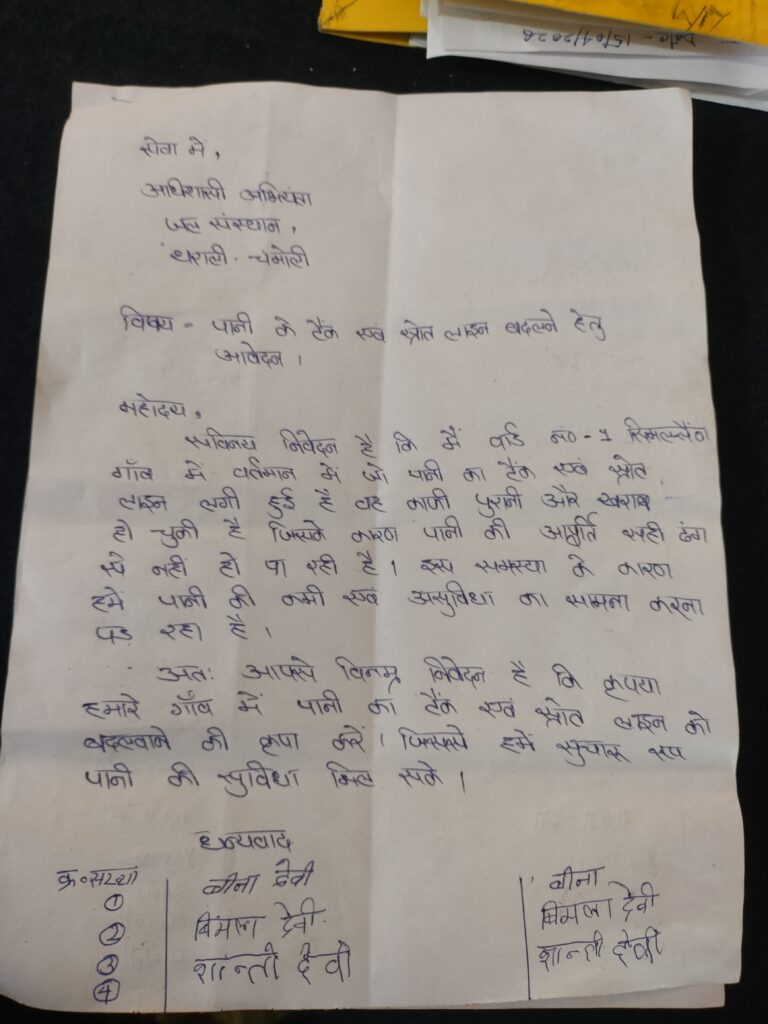 Date - 15/04/2026
सेवा में,
अधिशासी अभियंता
जल संस्थान,
थराली - चमोली
विषय = पानी के टैंक एवं स्रोत लाइन बदलने हेतु
आवेदन ।
महोदय,
सविनय निवेदन है कि मैं वार्ड नं० - 1 सिमलसैंण
गाँव में वर्तमान में जो पानी का टैंक एवं स्रोत
लाइन लगी हुई है वह काफी पुरानी और खराब
हो चुकी है जिसके कारण पानी की आपूर्ति सही ढंग
से नहीं हो पा रही है । इस समस्या के कारण
हमें पानी की कमी एवं असुविधा का सामना करना
पड़ रहा है ।
अतः आपसे विनम्र निवेदन है कि कृपया
हमारे गाँव में पानी का टैंक एवं स्रोत लाइन को
बदलवाने की कृपा करें । जिससे हमें सुचारू रूप
पानी की सुविधा मिल सके ।
धन्यवाद
क्र०संख्या
① बीना देवी बीना
② बिमला देवी बिमला देवी
③ शान्ती देवी शान्ती देवी
④